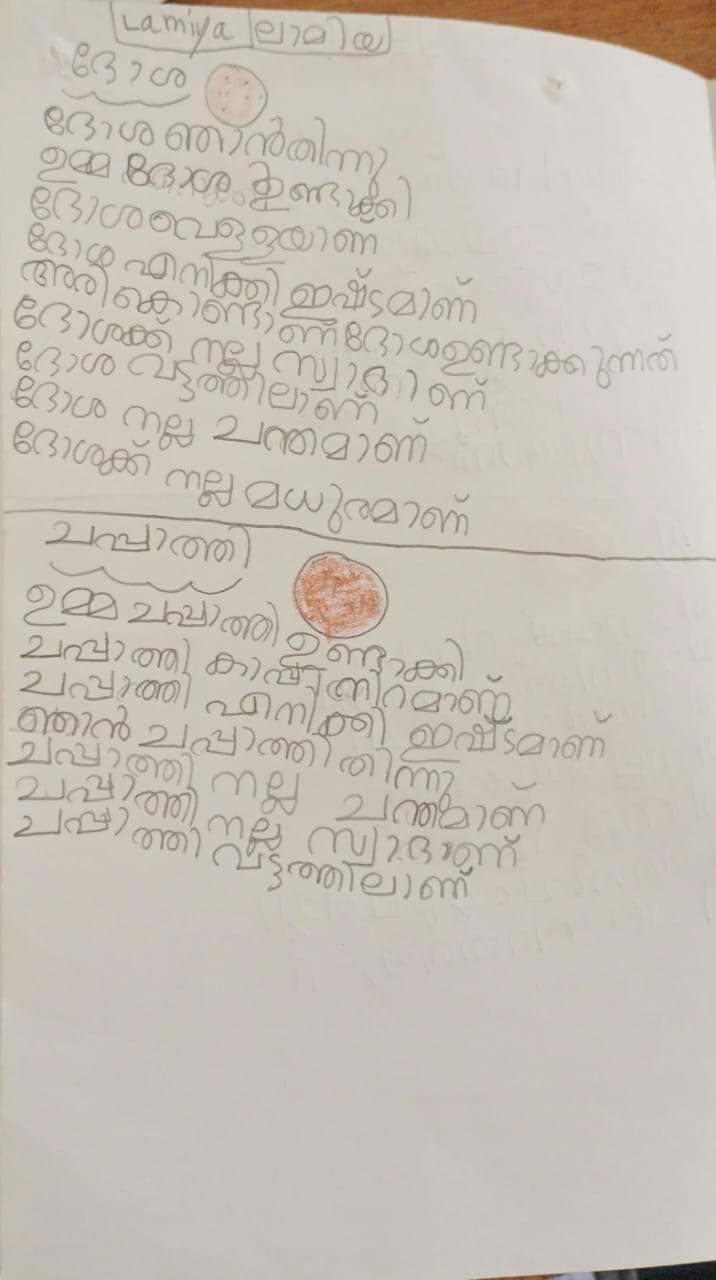 Lamiya ലാമിയ
ദോശ
ദോശ ഞാൻതിന്നു
ഉമ്മ ദോശ ഉണ്ടാക്കി
ദോശവെള്ളയാണ്
ദോശ എനിക്കി ഇഷ്ടമാണ്
അരി കൊണ്ടാണ് ദോശഉണ്ടാക്കുന്നത്
ദോശക്ക് നല്ല സ്വാദാണ്
ദോശ വട്ടത്തിലാണ്
ദോശ നല്ല ചന്തമാണ്
ദോശക്ക് നല്ല മധുരമാണ്
ചപ്പാത്തി
ഉമ്മ ചപ്പാത്തി ഉണ്ടാക്കി
ചപ്പാത്തി കാപ്പി നിറമാണ്
ചപ്പാത്തി എനിക്കി ഇഷ്ടമാണ്
ഞാൻ ചപ്പാത്തി തിന്നു
ചപ്പാത്തി നല്ല ചന്തമാണ്
ചപ്പാത്തി നല്ല സ്വാദാണ്
ചപ്പാത്തി വട്ടത്തിലാണ്